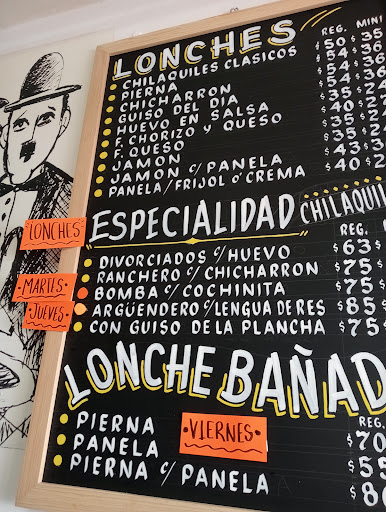 LONCHES REG. MINI
CHILAQUILES CLASICOS $50 $35
PIERNA $54 $36
CHICHARRON $54 $36
GUISO DEL DIA $54
HUEVO EN SALSA $40
F. CHORIZO Y QUESO
F. QUESO $35
JAMON $35
JAMON c/ PANELA $44
PANELA/FRIJOL o' CREMA $40
LONCHES
ESPECIALIDAD CHILAQUI
REG.
DIVORCIADOS c/HUEVO $63
RANCHERO c/ CHICHARRON $75
MARTES BOMBA c/COCHINITA $75
JUEVES ARGÜENDERO c/LENGUA DE RES $85
CON GUISO DE LA PLANCHA $75
LONCHE BAÑAD
REG.
PIERNA VIERNES $70
PANELA $55
PIERNA c/ PANELA